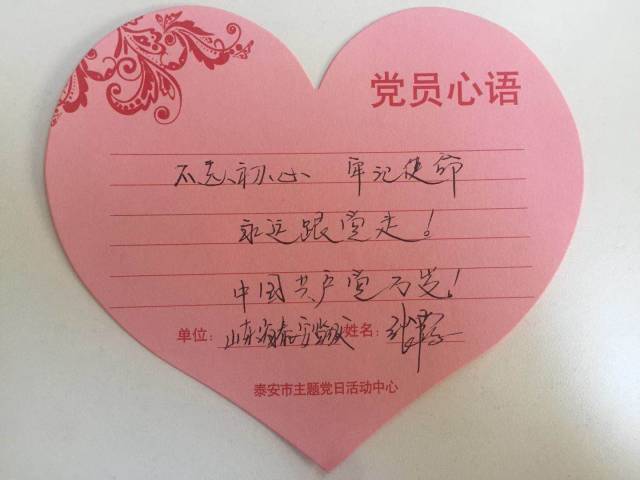 党员心语
不忘初心 牢记使命
永远跟党走!
中国共产党万岁!
单位: 山东省泰安监狱 姓名: 张
泰安市主题党日活动中心